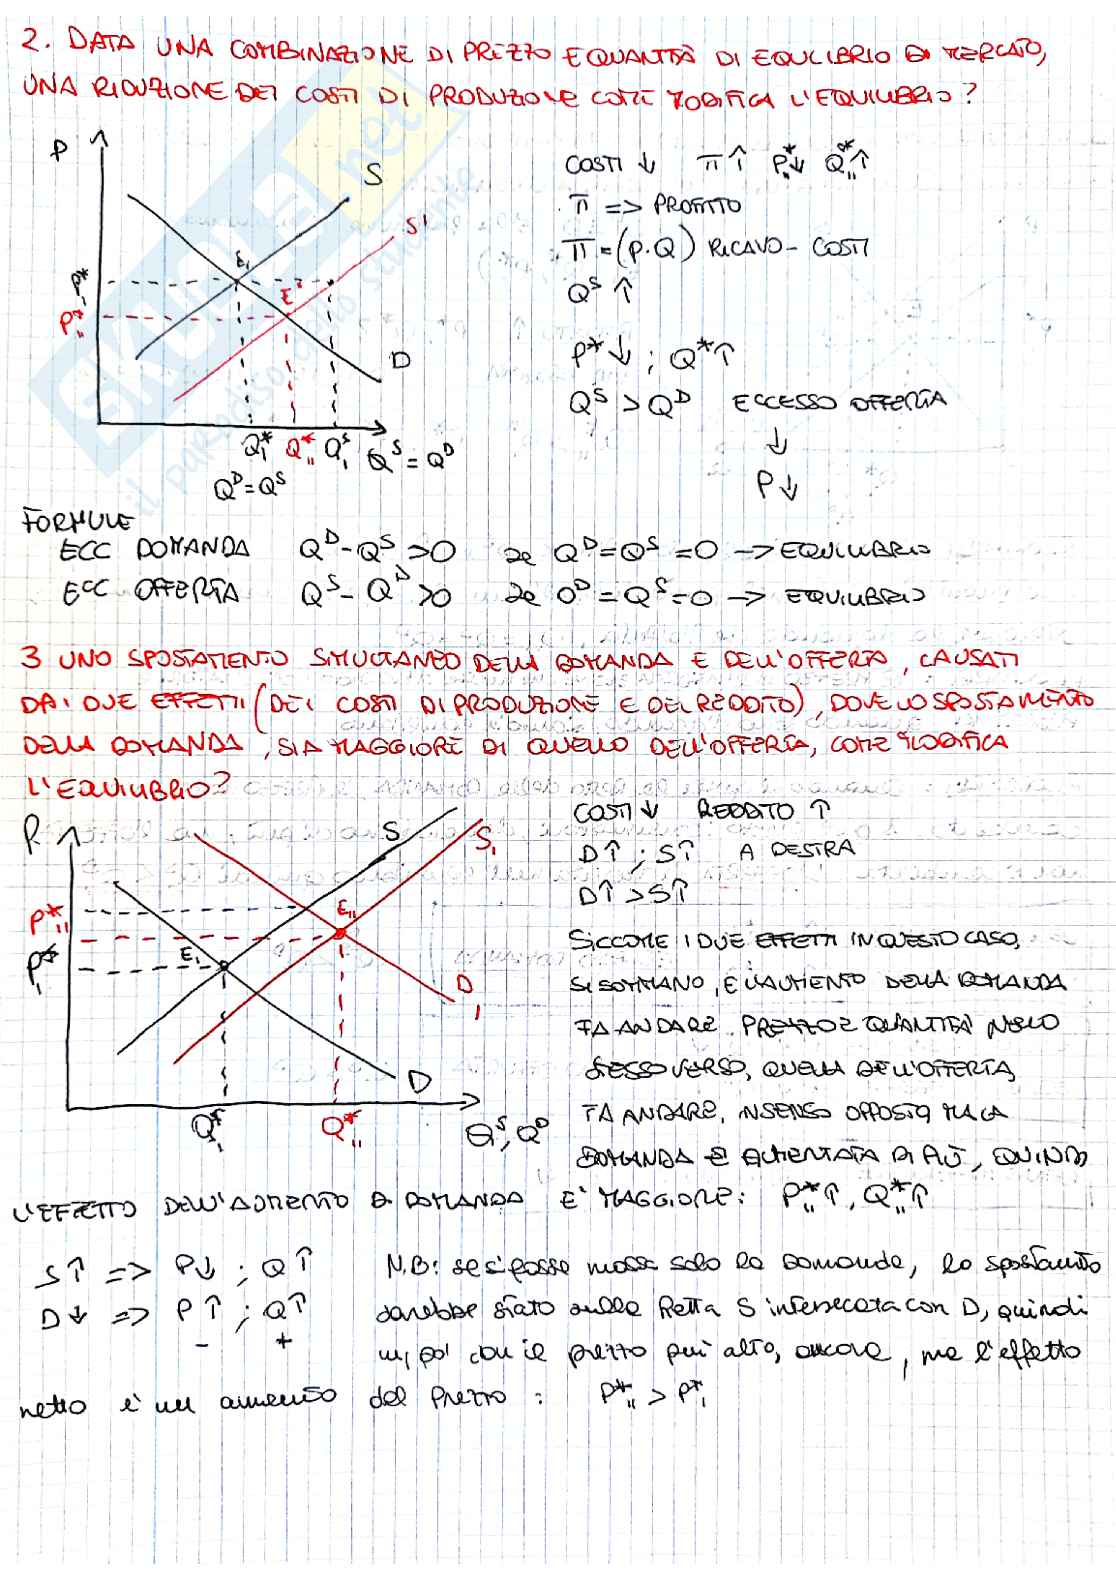 2. DATA UNA COMBINAZIONE DI PREZZO E QUANTITÀ DI EQUILIBRIO DI MERCATO,
UNA RIDUZIONE DEI COSTI DI PRODUZIONE COME MODIFICA L'EQUILIBRIO?
P
S
S'
COSTI ↓ π↑ P*,,↓ Q*,,↑
π => PROFITTO
π = (P·Q) RICAVO - COSTI
Q^S ↑
E,
E'
P*,
P*,,
D
P*↓ ; Q*↑
Q^S > Q^D ECCESSO OFFERTA
↓
P↓
Q*, Q*,, Q^S, Q^S = Q^D
Q^D = Q^S
FORMULE
ECC DOMANDA Q^D - Q^S > 0 se Q^D = Q^S = 0 → EQUILIBRIO
ECC OFFERTA Q^S - Q^D > 0 se Q^D = Q^S = 0 → EQUILIBRIO
3 UNO SPOSTAMENTO SIMULTANEO DELLA DOMANDA E DELL'OFFERTA, CAUSATI
DAI DUE EFFETTI (DEI COSTI DI PRODUZIONE E DEL REDDITO), DOVE LO SPOSTAMENTO
DELLA DOMANDA, SIA MAGGIORE DI QUELLO DELL'OFFERTA, COME MODIFICA
L'EQUILIBRIO?
P
S
S,
COSTI ↓ REDDITO ↑
D↑ ; S↑ A DESTRA
D↑ > S↑
P*,,
P*,
E,
E,,
D,
D
Q*,
Q*,,
Q^S, Q^D
SICCOME I DUE EFFETTI IN QUESTO CASO,
SI SOMMANO, E L'AUMENTO DELLA DOMANDA
FA ANDARE PREZZO E QUANTITÀ NELLO
STESSO VERSO, QUELLA DELL'OFFERTA,
FA ANDARE, IN SENSO OPPOSTO, MA LA
DOMANDA È AUMENTATA DI PIÙ, QUINDI
L'EFFETTO DELL'AUMENTO DI DOMANDA E' MAGGIORE: P*,,↑, Q*,,↑
S↑ => P↓ ; Q↑ N.B: se si fosse mossa solo la domanda, lo spostamento
D↓ => P↑ ; Q↑ sarebbe stato sulla Retta S intersecata con D, quindi
- + un po' con il prezzo più alto, ancora, ma l'effetto
netto è un aumento del Prezzo : P*,, > P*,
SKUOLA.net
il paradiso dello studente